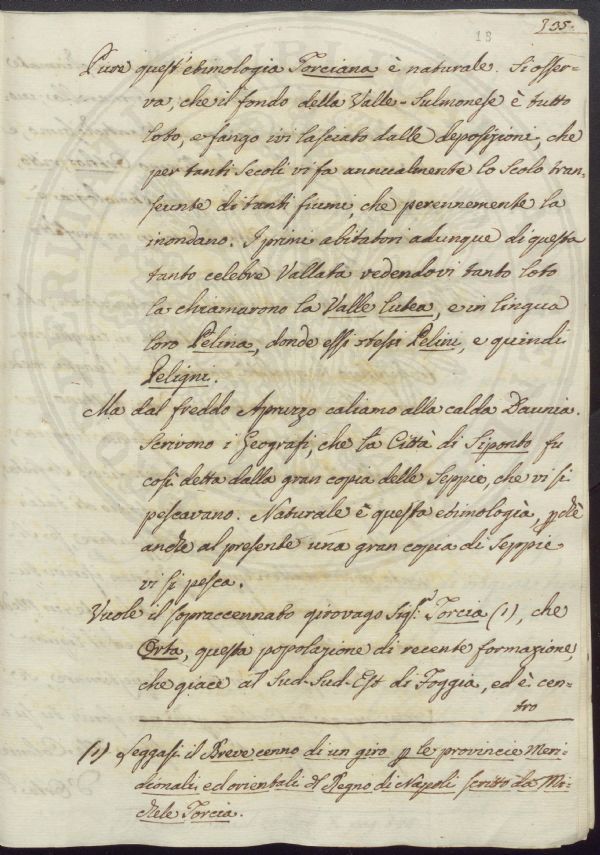 135.
13
Pure quest'etimologia Torciana è naturale. Si osser-
va, che il fondo della Valle-Sulmonese è tutto
loto, e fango ivi lasciato dalle deposizioni, che
per tanti secoli vi fa annualmente lo scolo tran-
seunte di tanti fiumi, che perennemente la
inondano. I primi abitatori adunque di questa
tanto celebre Vallata vedendovi tanto loto
la chiamarono la Valle Lutea, e in lingua
loro Pelina, donde essi stessi Pelini, e quindi
Peligni.
Ma dal freddo Apruzzo caliamo alla calda Daunia.
Scrivono i Geografi, che la Città di Siponto fu
così detta dalla gran copia delle Seppie, che vi si
pescavano. Naturale è questa etimologia, pchè
anche al presente una gran copia di Seppie
vi si pesca.
Vuole il sopraccennato girovago Sigr. Torcia (1), che
Orta, questa popolazione di recente formazione,
che giace al Sud-Sud-Est di Foggia, ed è cen-
tro
(1) Leggasi il Breve cenno di un giro p le provincie Meri-
dionali, ed orientali del Regno di Napoli scritto da Mi-
chele Torcia.